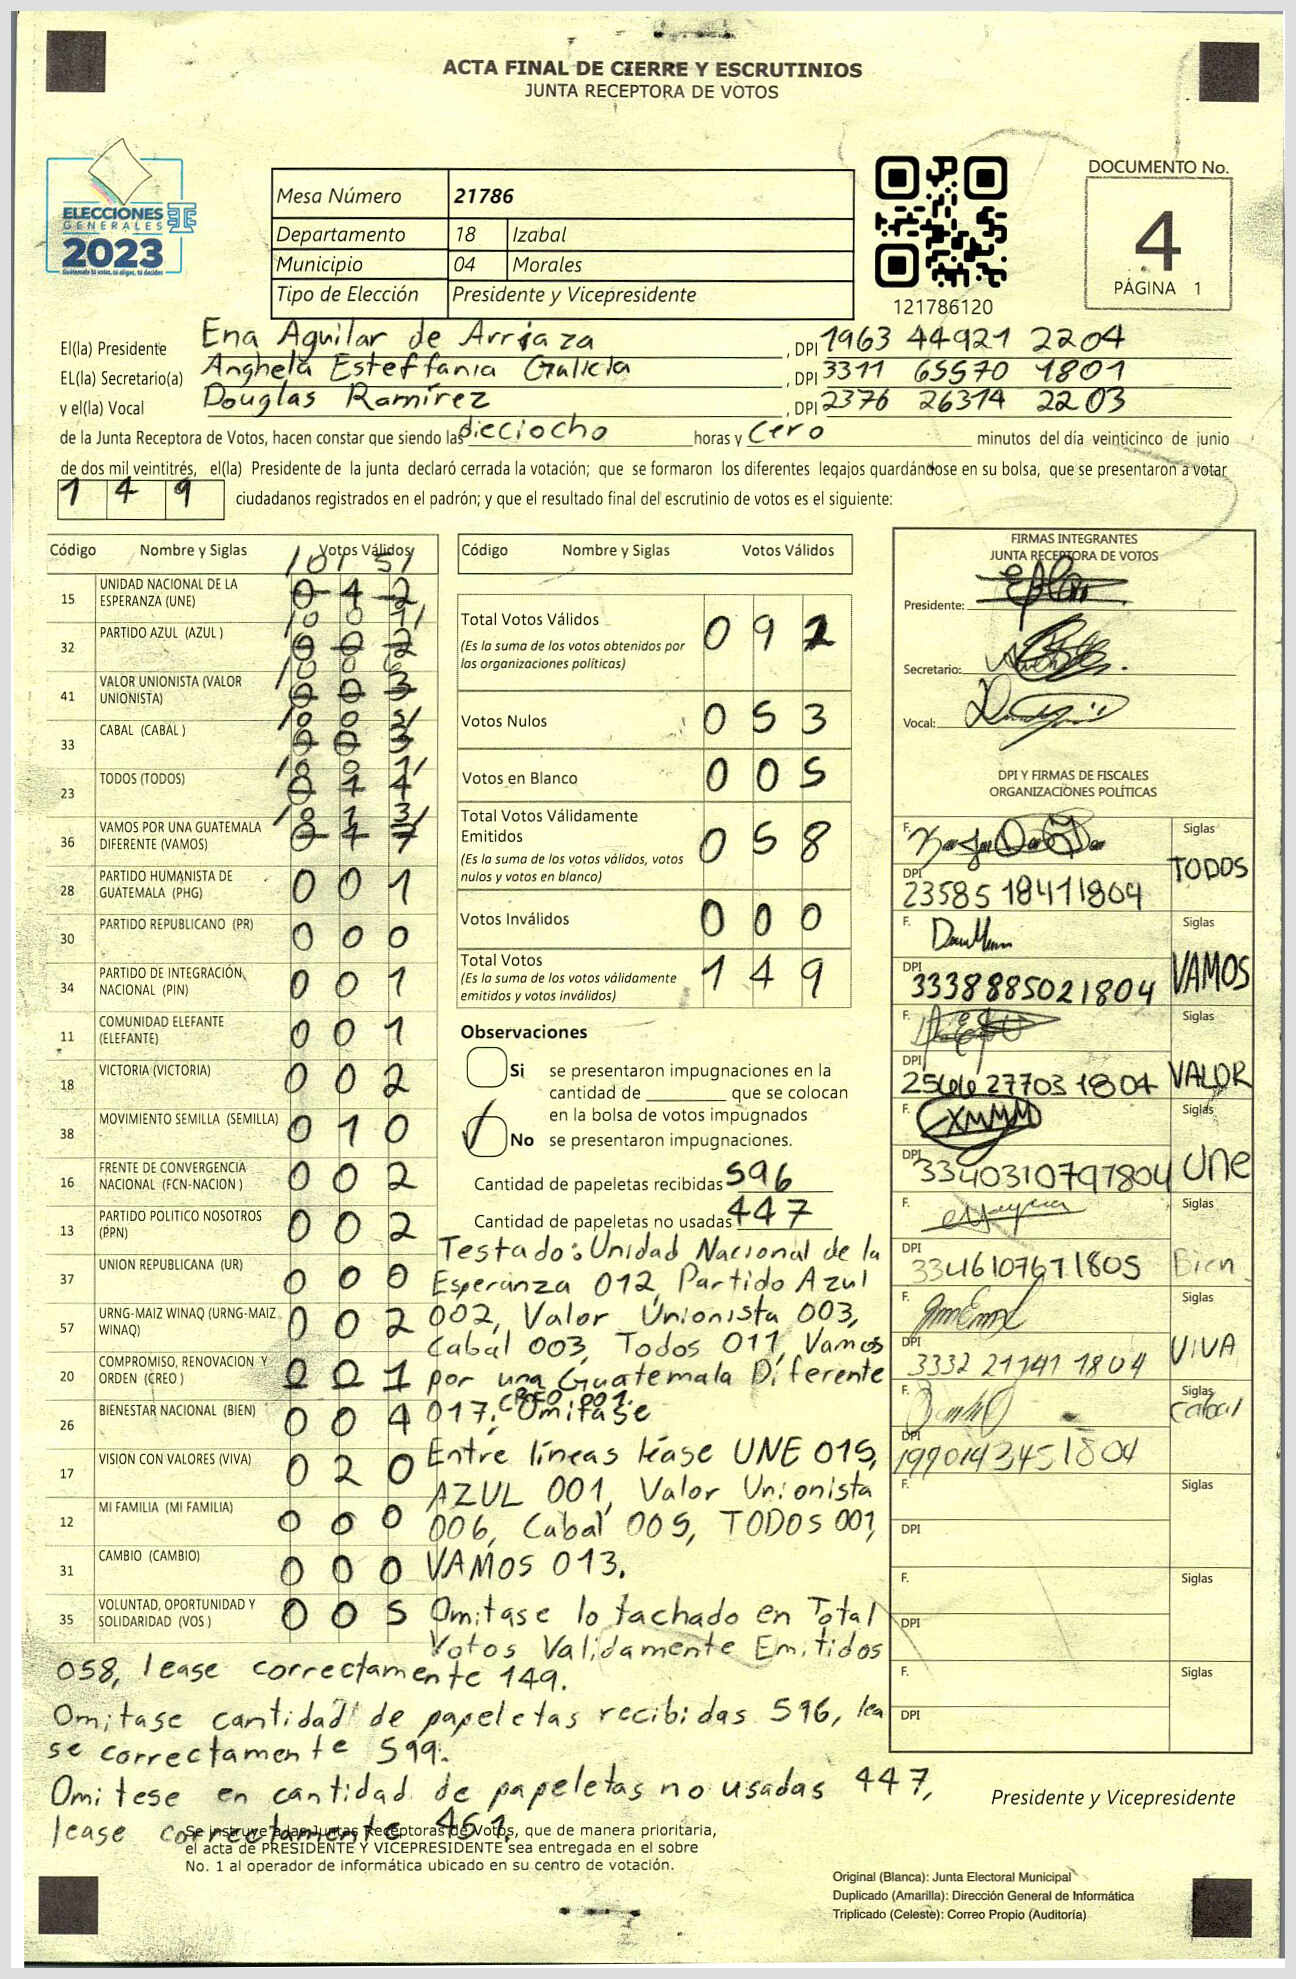 ACTA FINAL DE CIERRE Y ESCRUTINIOS
JUNTA RECEPTORA DE VOTOS
ELECCIONES
GENERALES
2023
Mesa Número 21786
Departamento 18 Izabal
Municipio 04 Morales
Tipo de Elección Presidente y Vicepresidente
121786120
DOCUMENTO No.
4
PÁGINA 1
El(la) Presidente Ena Aguilar de Arriaza, DPI 1963 44921 2204
EL(la) Secretario(a) Anghela Esteffania Galicia, DPI 3311 65570 1801
y el(la) Vocal Douglas Ramírez, DPI 2376 26314 2203
de la Junta Receptora de Votos, hacen constar que siendo las dieciocho horas y cero minutos del día veinticinco de junio
de dos mil veintitrés, el(la) Presidente de la junta declaró cerrada la votación; que se formaron los diferentes legajos guardándose en su bolsa, que se presentaron a votar
149 ciudadanos registrados en el padrón; y que el resultado final del escrutinio de votos es el siguiente:
Código Nombre y Siglas Votos Válidos
15 UNIDAD NACIONAL DE LA
ESPERANZA (UNE)
32 PARTIDO AZUL (AZUL )
41 VALOR UNIONISTA (VALOR
UNIONISTA) 0 0 3
33 CABAL (CABAL ) 0 0 3
23 TODOS (TODOS)
36 VAMOS POR UNA GUATEMALA
DIFERENTE (VAMOS) 0 1 7
28 PARTIDO HUMANISTA DE
GUATEMALA (PHG) 0 0 1
30 PARTIDO REPUBLICANO (PR) 0 0 0
34 PARTIDO DE INTEGRACIÓN
NACIONAL (PIN) 0 0 1
11 COMUNIDAD ELEFANTE
(ELEFANTE) 0 0 1
18 VICTORIA (VICTORIA) 0 0 2
38 MOVIMIENTO SEMILLA (SEMILLA) 0 1 0
16 FRENTE DE CONVERGENCIA
NACIONAL (FCN-NACION ) 0 0 2
13 PARTIDO POLITICO NOSOTROS
(PPN) 0 0 2
37 UNION REPUBLICANA (UR) 0 0 0
57 URNG-MAIZ WINAQ (URNG-MAIZ
WINAQ) 0 0 2
20 COMPROMISO, RENOVACION Y
ORDEN (CREO ) 0 0 1
26 BIENESTAR NACIONAL (BIEN) 0 0 4
17 VISION CON VALORES (VIVA) 0 2 0
12 MI FAMILIA (MI FAMILIA) 0 0 0
31 CAMBIO (CAMBIO) 0 0 0
35 VOLUNTAD, OPORTUNIDAD Y
SOLIDARIDAD (VOS ) 0 0 5
Código Nombre y Siglas Votos Válidos
Total Votos Válidos
(Es la suma de los votos obtenidos por
las organizaciones políticas) 0 9
Votos Nulos 0 5 3
Votos en Blanco 0 0 5
Total Votos Válidamente
Emitidos
(Es la suma de los votos válidos, votos
nulos y votos en blanco) 0 5 8
Votos Inválidos 0 0 0
Total Votos
(Es la suma de los votos válidamente
emitidos y votos inválidos) 1 4 9
Observaciones
Si se presentaron impugnaciones en la
cantidad de ________ que se colocan
en la bolsa de votos impugnados
No se presentaron impugnaciones.
Cantidad de papeletas recibidas 596
Cantidad de papeletas no usadas 447
Testado: Unidad Nacional de la
Esperanza 012, Partido Azul
002, Valor Unionista 003,
Cabal 003, Todos 011, Vamos
por una Guatemala Diferente
CREO 001.
017, Omitase
Entre líneas léase UNE 015,
AZUL 001, Valor Unionista
006, Cabal 005, TODOS 001,
VAMOS 013.
Omitase lo tachado en Total
Votos Validamente Emitidos
058, lease correctamente 149.
Omitase cantidad de papeletas recibidas 596, lea
se correctamente 599.
Omitese en cantidad de papeletas no usadas 447,
lease correctamente 451.
FIRMAS INTEGRANTES
JUNTA RECEPTORA DE VOTOS
Presidente:
Secretario:
Vocal:
DPI Y FIRMAS DE FISCALES
ORGANIZACIONES POLÍTICAS
F. Siglas TODOS
DPI 23585 18411804
F. Siglas VAMOS
DPI 3338885021804
F. Siglas VALOR
DPI 2566 27703 1804
F. Siglas Une
DPI 3340310797804
F. Siglas Bien
DPI 3346107671805
F. Siglas VIVA
DPI 3332 21141 1804
F. Siglas Cabal
DPI 1990143451804
F. Siglas
DPI
F. Siglas
DPI
F. Siglas
DPI
Presidente y Vicepresidente
Se instruye a las Juntas Receptoras de Votos, que de manera prioritaria,
el acta de PRESIDENTE Y VICEPRESIDENTE sea entregada en el sobre
No. 1 al operador de informática ubicado en su centro de votación.
Original (Blanca): Junta Electoral Municipal
Duplicado (Amarilla): Dirección General de Informática
Triplicado (Celeste): Correo Propio (Auditoría)